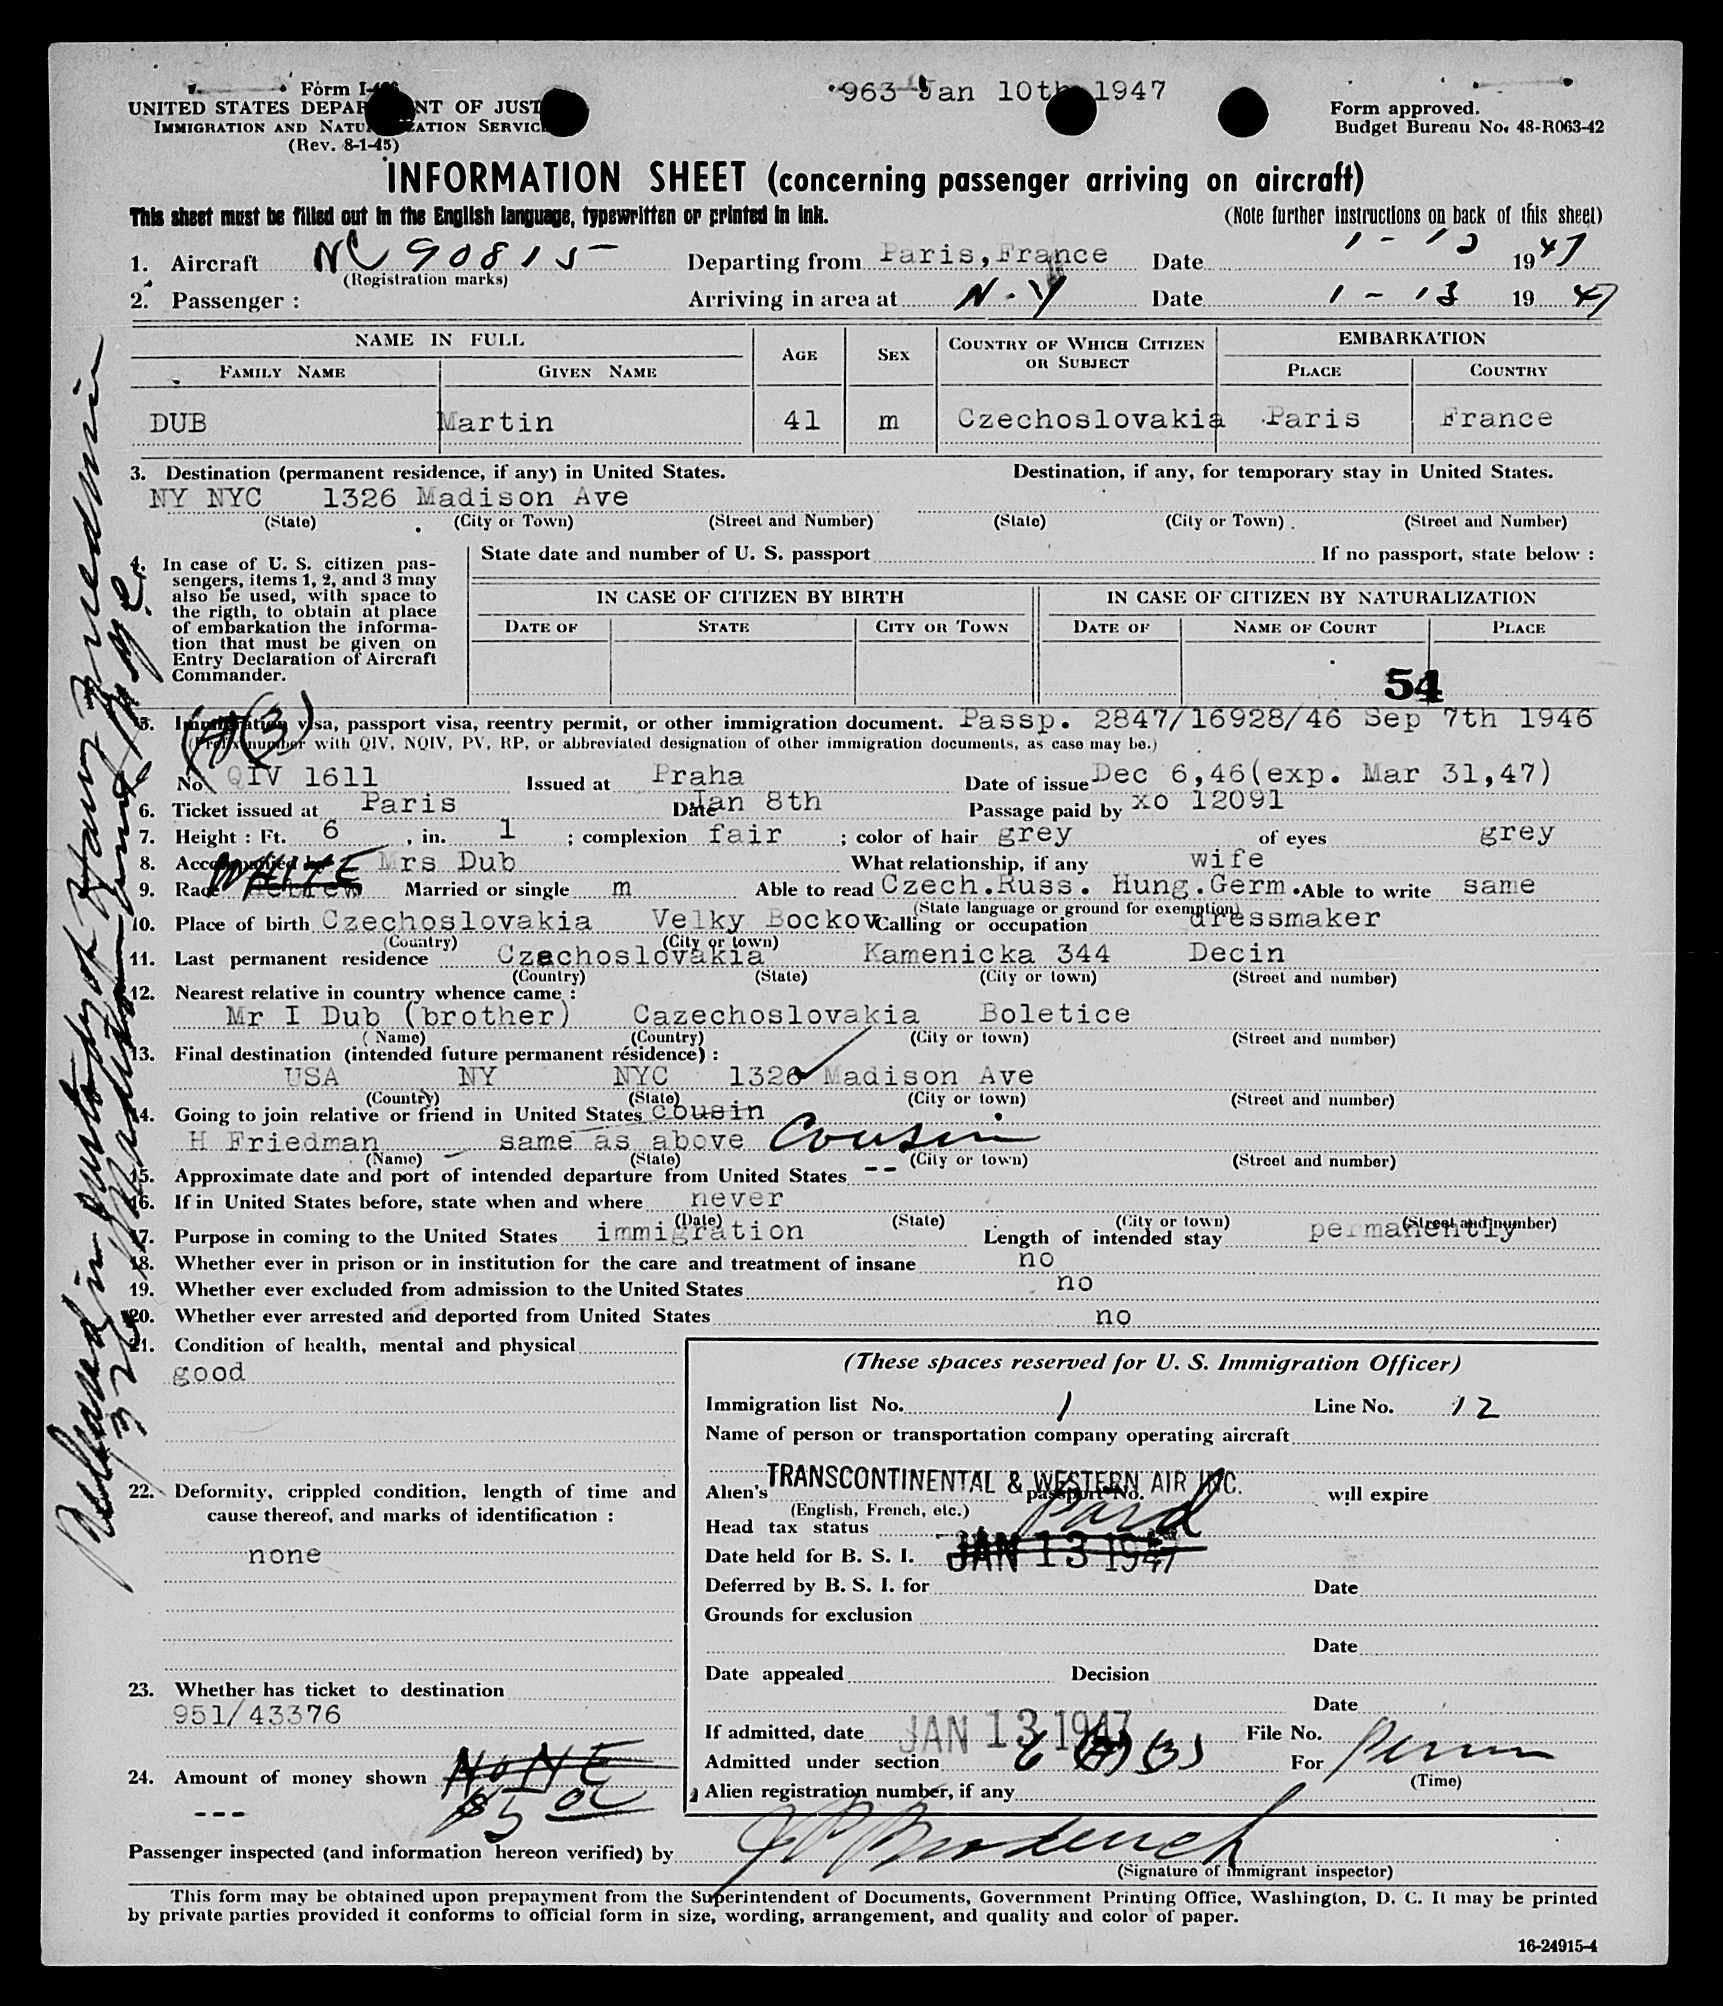 Form I-466
963 Jan 10th 1947
UNITED STATES DEPARTMENT OF JUSTICE
IMMIGRATION AND NATURALIZATION SERVICE
(Rev. 8-1-45)
Form approved.
Budget Bureau No. 48-R063-42
INFORMATION SHEET (concerning passenger arriving on aircraft)
This sheet must be filled out in the English language, typewritten or printed in ink.
(Note further instructions on back of this sheet)
1. Aircraft NC 90815 Departing from Paris, France Date 1-12 1947
(Registration marks)
2. Passenger : Arriving in area at N.Y Date 1-13 1947
NAME IN FULL AGE SEX COUNTRY OF WHICH CITIZEN OR SUBJECT EMBARKATION
FAMILY NAME GIVEN NAME PLACE COUNTRY
DUB Martin 41 m Czechoslovakia Paris France
3. Destination (permanent residence, if any) in United States. Destination, if any, for temporary stay in United States.
NY NYC 1326 Madison Ave
(State) (City or Town) (Street and Number) (State) (City or Town) (Street and Number)
4. In case of U. S. citizen pas-
sengers, items 1, 2, and 3 may
also be used, with space to
the rigth, to obtain at place
of embarkation the informa-
tion that must be given on
Entry Declaration of Aircraft
Commander.
State date and number of U. S. passport If no passport, state below :
IN CASE OF CITIZEN BY BIRTH IN CASE OF CITIZEN BY NATURALIZATION
DATE OF STATE CITY OR TOWN DATE OF NAME OF COURT PLACE
54
5. Immigration visa, passport visa, reentry permit, or other immigration document. Passp. 2847/16928/46 Sep 7th 1946
(Prefix number with QIV, NQIV, PV, RP, or abbreviated designation of other immigration documents, as case may be.)
No. QIV 1611 Issued at Praha Date of issue Dec 6,46(exp. Mar 31,47)
6. Ticket issued at Paris Date Jan 8th Passage paid by xo 12091
7. Height : Ft. 6 , in. 1 ; complexion fair ; color of hair grey of eyes grey
8. Accompanied by Mrs Dub What relationship, if any wife
9. Race WHITE Hebrew Married or single m Able to read Czech.Russ. Hung.Germ. Able to write same
(State language or ground for exemption)
10. Place of birth Czechoslovakia Velky Bockov Calling or occupation dressmaker
(Country) (City or town)
11. Last permanent residence Czechoslovakia Kamenicka 344 Decin
(Country) (State) (City or town) (Street and number)
12. Nearest relative in country whence came :
Mr I Dub (brother) Cazechoslovakia Boletice
(Name) (Country) (City or town) (Street and number)
13. Final destination (intended future permanent résidence) :
USA NY NYC 1326 Madison Ave
(Country) (State) (City or town) (Street and number)
14. Going to join relative or friend in United States cousin
H Friedman same as above Cousin
(Name) (State) (City or town) (Street and number)
15. Approximate date and port of intended departure from United States --
16. If in United States before, state when and where never
(Date) (State) (City or town) (Street and number)
17. Purpose in coming to the United States immigration Length of intended stay permanently
18. Whether ever in prison or in institution for the care and treatment of insane no
19. Whether ever excluded from admission to the United States no
20. Whether ever arrested and deported from United States no
21. Condition of health, mental and physical
good
22. Deformity, crippled condition, length of time and
cause thereof, and marks of identification :
none
23. Whether has ticket to destination
951/43376
24. Amount of money shown NONE
--- $5 00
(These spaces reserved for U. S. Immigration Officer)
Immigration list No. 1 Line No. 12
Name of person or transportation company operating aircraft
TRANSCONTINENTAL & WESTERN AIR INC.
Alien's passport No. will expire
(English, French, etc.)
Head tax status Paid
Date held for B. S. I. JAN 13 1947
Deferred by B. S. I. for Date
Grounds for exclusion
Date
Date appealed Decision
Date
If admitted, date JAN 13 1947 File No.
Admitted under section 6 (A) (3) For Perm
(Time)
Alien registration number, if any
Passenger inspected (and information hereon verified) by
(Signature of immigrant inspector)
This form may be obtained upon prepayment from the Superintendent of Documents, Government Printing Office, Washington, D. C. It may be printed
by private parties provided it conforms to official form in size, wording, arrangement, and quality and color of paper.
16-24915-4
Released in custody of